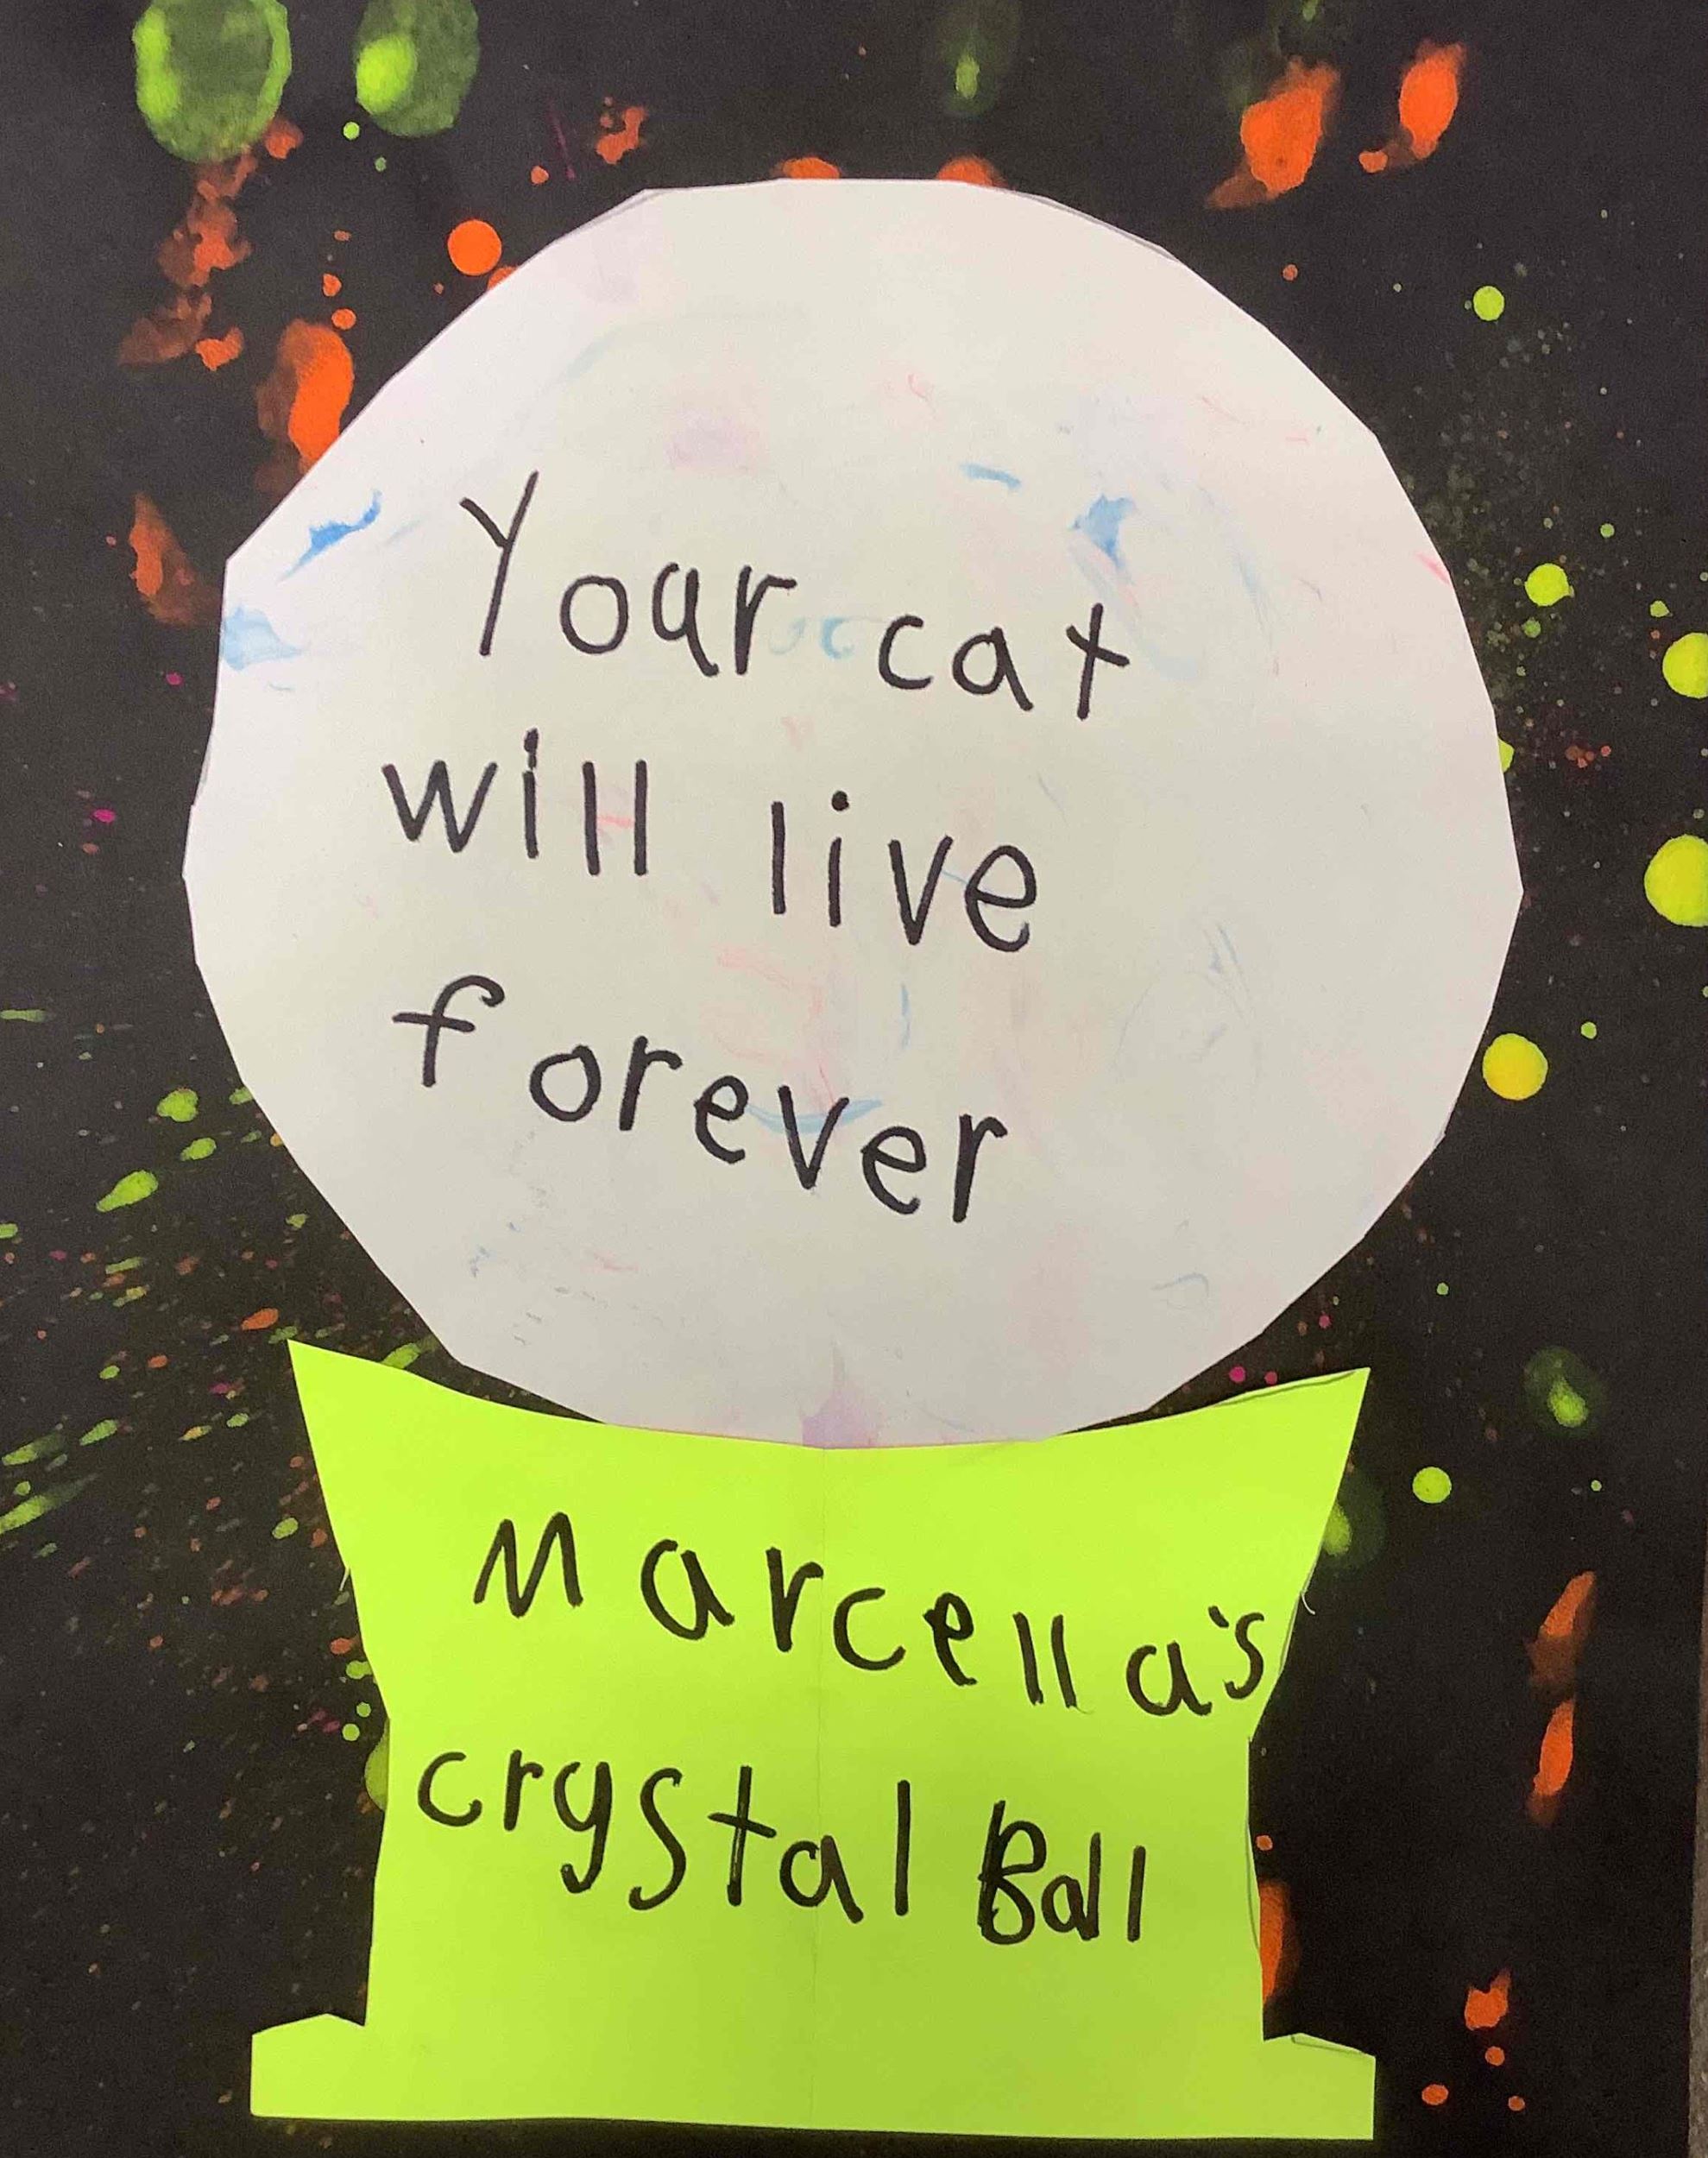 Your cat
will live
forever
Marcella's
crystal Ball